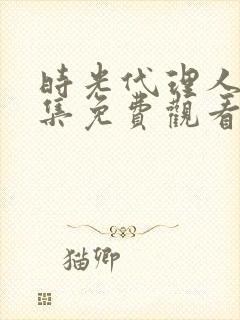 時光代理人
集免費觀看
猫卿